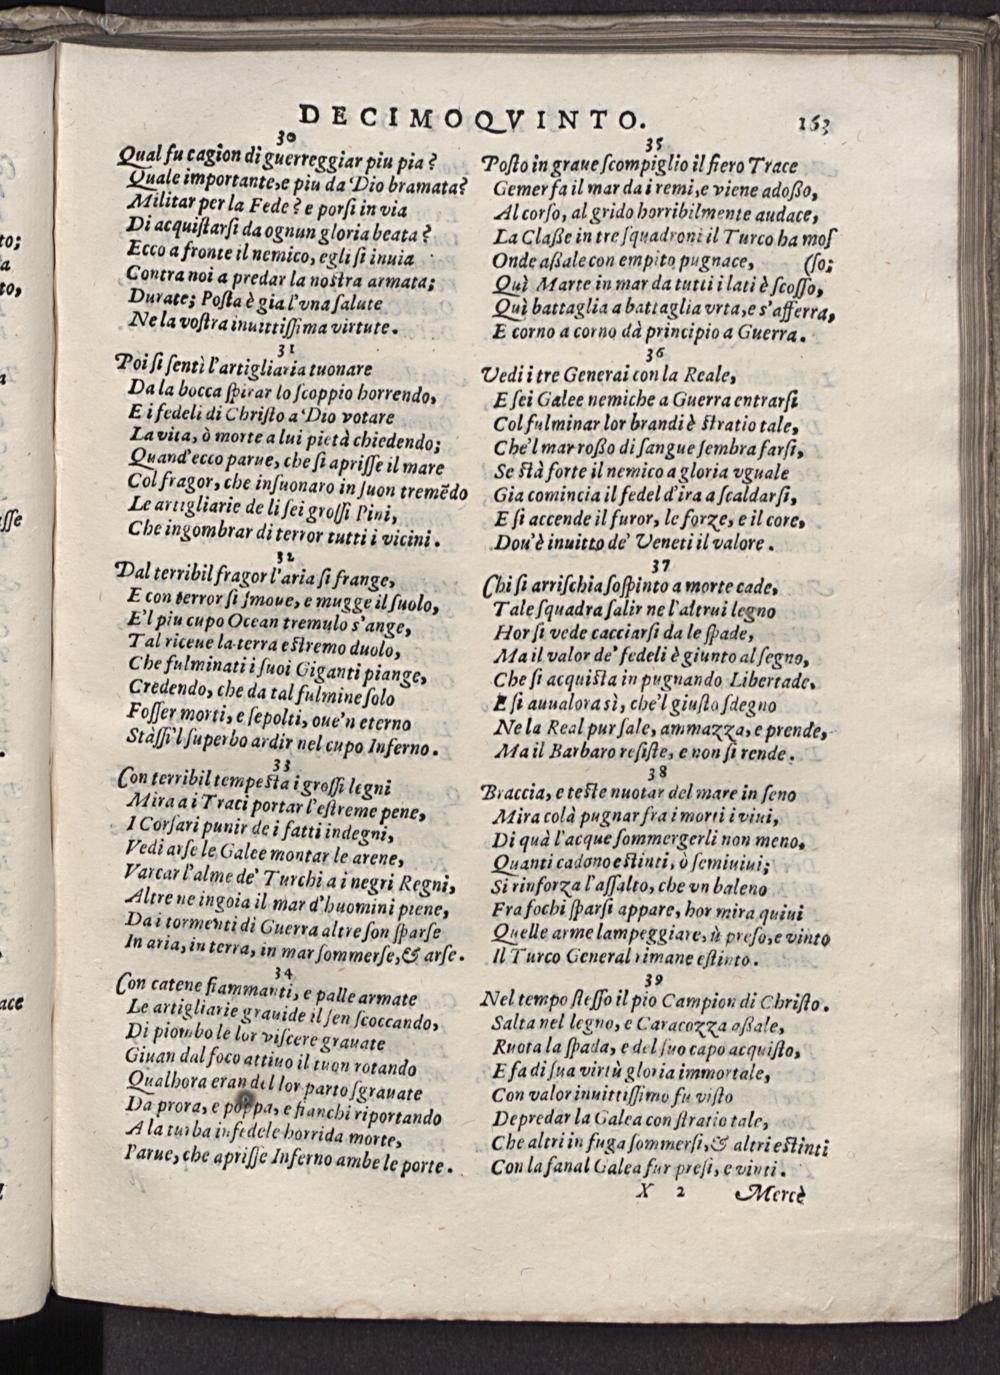 DECIMOQVINTO.
163
30
Qual fu cagion di guerreggiar piu pia?
Quale importante, e piu da Dio bramata?
Militar per la Fede? e porsi in via
Di acquistarsi da ognun gloria beata?
Ecco a fronte il nemico, egli si inuia
Contra noi a predar la nostra armata;
Durate; Posta è gia l'vna salute
Ne la vostra inuittissima virtute.
31
Poi si sentì l'artigliaria tuonare
Da la bocca spirar lo scoppio horrendo,
E i fedeli di Christo a Dio votare
La vita, ò morte a lui pietà chiedendo;
Quand'ecco parue, che si aprisse il mare
Col fragor, che insuonaro in suon tremẽdo
Le artigliarie de li sei grossi Pini,
Che ingombrar di terror tutti i vicini.
32
Dal terribil fragor l'aria si frange,
E con terror si smoue, e mugge il suolo,
E'l piu cupo Ocean tremulo s'ange,
Tal riceue la terra estremo duolo,
Che fulminati i suoi Giganti piange,
Credendo, che da tal fulmine solo
Fosser morti, e sepolti, oue'n eterno
Stassi'l superbo ardir nel cupo Inferno.
33
Con terribil tempesta i grossi legni
Mira a i Traci portar l'estreme pene,
I Corsari punir de i fatti indegni,
Vedi arse le Galee montar le arene,
Varcar l'alme de' Turchi a i negri Regni,
Altre ne ingoia il mar d'huomini piene,
Da i tormenti di Guerra altre son sparse
In aria, in terra, in mar sommerse, & arse.
34
Con catene fiammanti, e palle armate
Le artigliarie grauide il sen scoccando,
Di piombo le lor viscere grauate
Giuan dal foco attiuo il tuon rotando
Qualhora eran del lor parto sgrauate
Da prora, e poppa, e fianchi riportando
A la turba infedele horrida morte,
Parue, che aprisse Inferno ambe le porte.
35
Posto in graue scompiglio il fiero Trace
Gemer fa il mar da i remi, e viene adosso,
Al corso, al grido horribilmente audace,
La Classe in tre squadroni il Turco ha mos
Onde assale con empito pugnace, (so;
Quì Marte in mar da tutti i lati è scosso,
Quì battaglia a battaglia vrta, e s'afferra,
E corno a corno dà principio a Guerra.
36
Vedi i tre Generai con la Reale,
E sei Galee nemiche a Guerra entrarsi
Col fulminar lor brandi è stratio tale,
Che'l mar rosso di sangue sembra farsi,
Se stà forte il nemico a gloria vguale
Gia comincia il fedel d'ira a scaldarsi,
E si accende il furor, le forze, e il core,
Dou'è inuitto de' Veneti il valore.
37
Chi si arrischia sospinto a morte cade,
Tale squadra salir ne l'altrui legno
Hor si vede cacciarsi da le spade,
Ma il valor de' fedeli è giunto al segno,
Che si acquista in pugnando Libertade,
E si auualora sì, che'l giusto sdegno
Ne la Real pur sale, ammazza, e prende,
Ma il Barbaro resiste, e non si rende.
38
Braccia, e teste nuotar del mare in seno
Mira colà pugnar fra i morti i viui,
Di quà l'acque sommergerli non meno,
Quanti cadono estinti, ò semiuiui;
Si rinforza l'assalto, che vn baleno
Fra fochi sparsi appare, hor mira quiui
Quelle arme lampeggiare, ù preso, e vinto
Il Turco General rimane estinto.
39
Nel tempo stesso il pio Campion di Christo.
Salta nel legno, e Caracozza assale,
Ruota la spada, e del suo capo acquisto,
E fa di sua virtù gloria immortale,
Con valor inuittissimo fu visto
Depredar la Galea con stratio tale,
Che altri in fuga sommersi, & altri estinti
Con la fanal Galea fur presi, e vinti.
X 2 Mercè